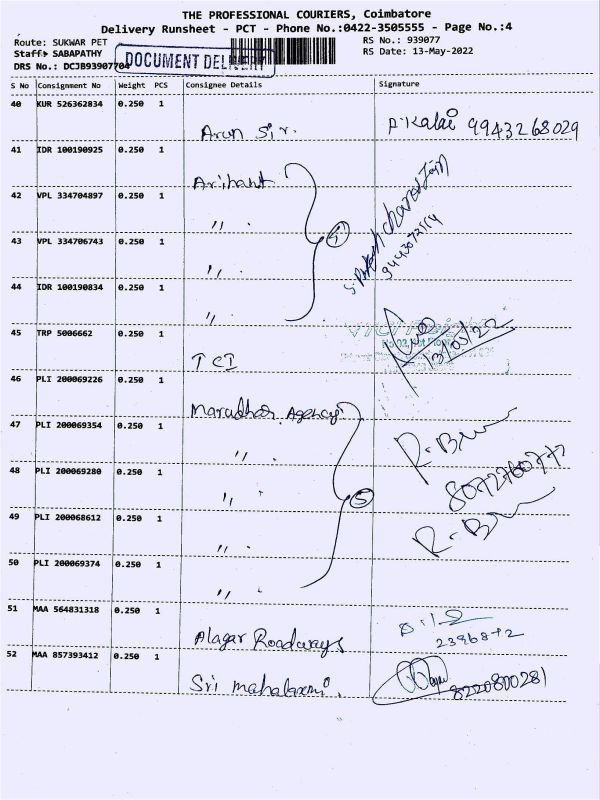 THE PROFESSIONAL COURIERS, Coimbatore
Delivery Runsheet - PCT - Phone No.:0422-3505555 - Page No.:4
Route: SUKWAR PET
RS No.: 939077
Staff: SABAPATHY
RS Date: 13-May-2022
DRS No.: DCJB93907704
DOCUMENT DELIVERY
S No Consignment No Weight PCS Consignee Details Signature
40 KUR 526362834 0.250 1
Arun Sir. P.Kalai 9943268029
41 IDR 100190925 0.250 1
Arihant
42 VPL 334704897 0.250 1
,, .
43 VPL 334706743 0.250 1
,, .
44 IDR 100190834 0.250 1
,, .
45 TRP 5006662 0.250 1
TCI 13/05/22
46 PLI 200069226 0.250 1
Marudhar Agency
47 PLI 200069354 0.250 1
,, .
48 PLI 200069280 0.250 1
,, .
5
49 PLI 200068612 0.250 1
,, .
50 PLI 200069374 0.250 1
,, .
51 MAA 564831318 0.250 1
Alagar Roadways
52 MAA 857393412 0.250 1
Sri mahalaxmi. 8220800281